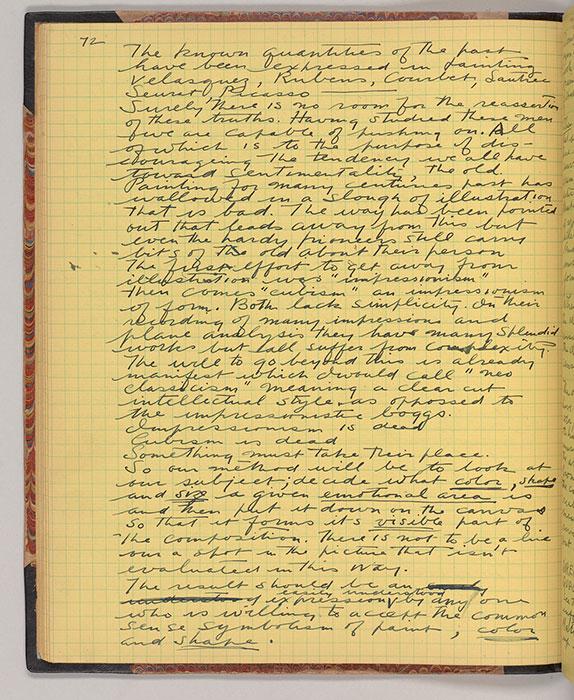 72
The known quantities of the past
have been expressed in painting
Velasquez, Rubens, Courbet, Lautrec
Seurat, Picasso
Surely there is no room for the reassertion
of these truths. Having studied these men
few are capable of pushing on. All
of which is to the purpose of dis-
couraging the tendency we all have
toward sentimentality, the old.
Painting for many centuries past has
wallowed in a slough of illustration
that is bad. The way has been pointed
out that leads away from this but
even the hardy pioneers still carry
bits of the old about their person
The first effort to get away from
illustration was "impressionism"
Then comes "cubism" an impressionism
of form. Both lack simplicity. In their
recording of many impressions and
plane analysis they have many splendid
works but all suffer from complexity.
The will to go beyond this is already
manifest which I would call "neo
classicism" meaning a clear cut
intellectual style as opposed to
the impressionistic boggs.
Impressionism is dead
Cubism is dead
Something must take their place.
So our method will be to look at
our subject; decide what color, shape
and size a given emotional area is
and then put it down on the canvas
so that it forms its visible part of
the composition. There is not to be a line
our a spot in the picture that isn't
evaluated in this way.
The result should be an
easily understood
of expression by any one
who is willing to accept the common
sense symbolism of paint, color
and shape.